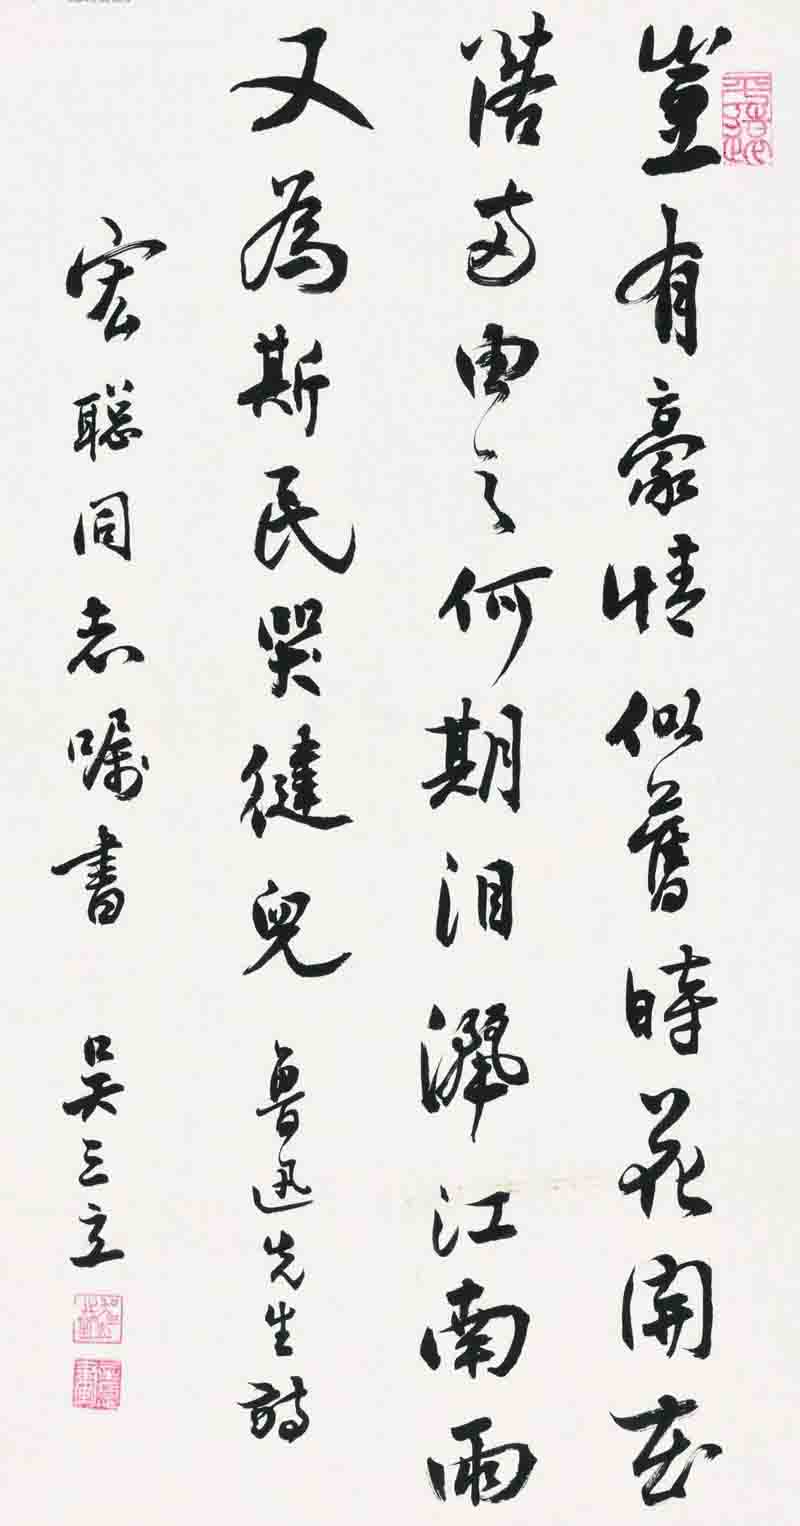 豈有豪情似舊時花開花
落两由之何期泪灑江南雨
又為斯民哭健兒 魯迅先生詩
宏聪同志嘱書 吴三立